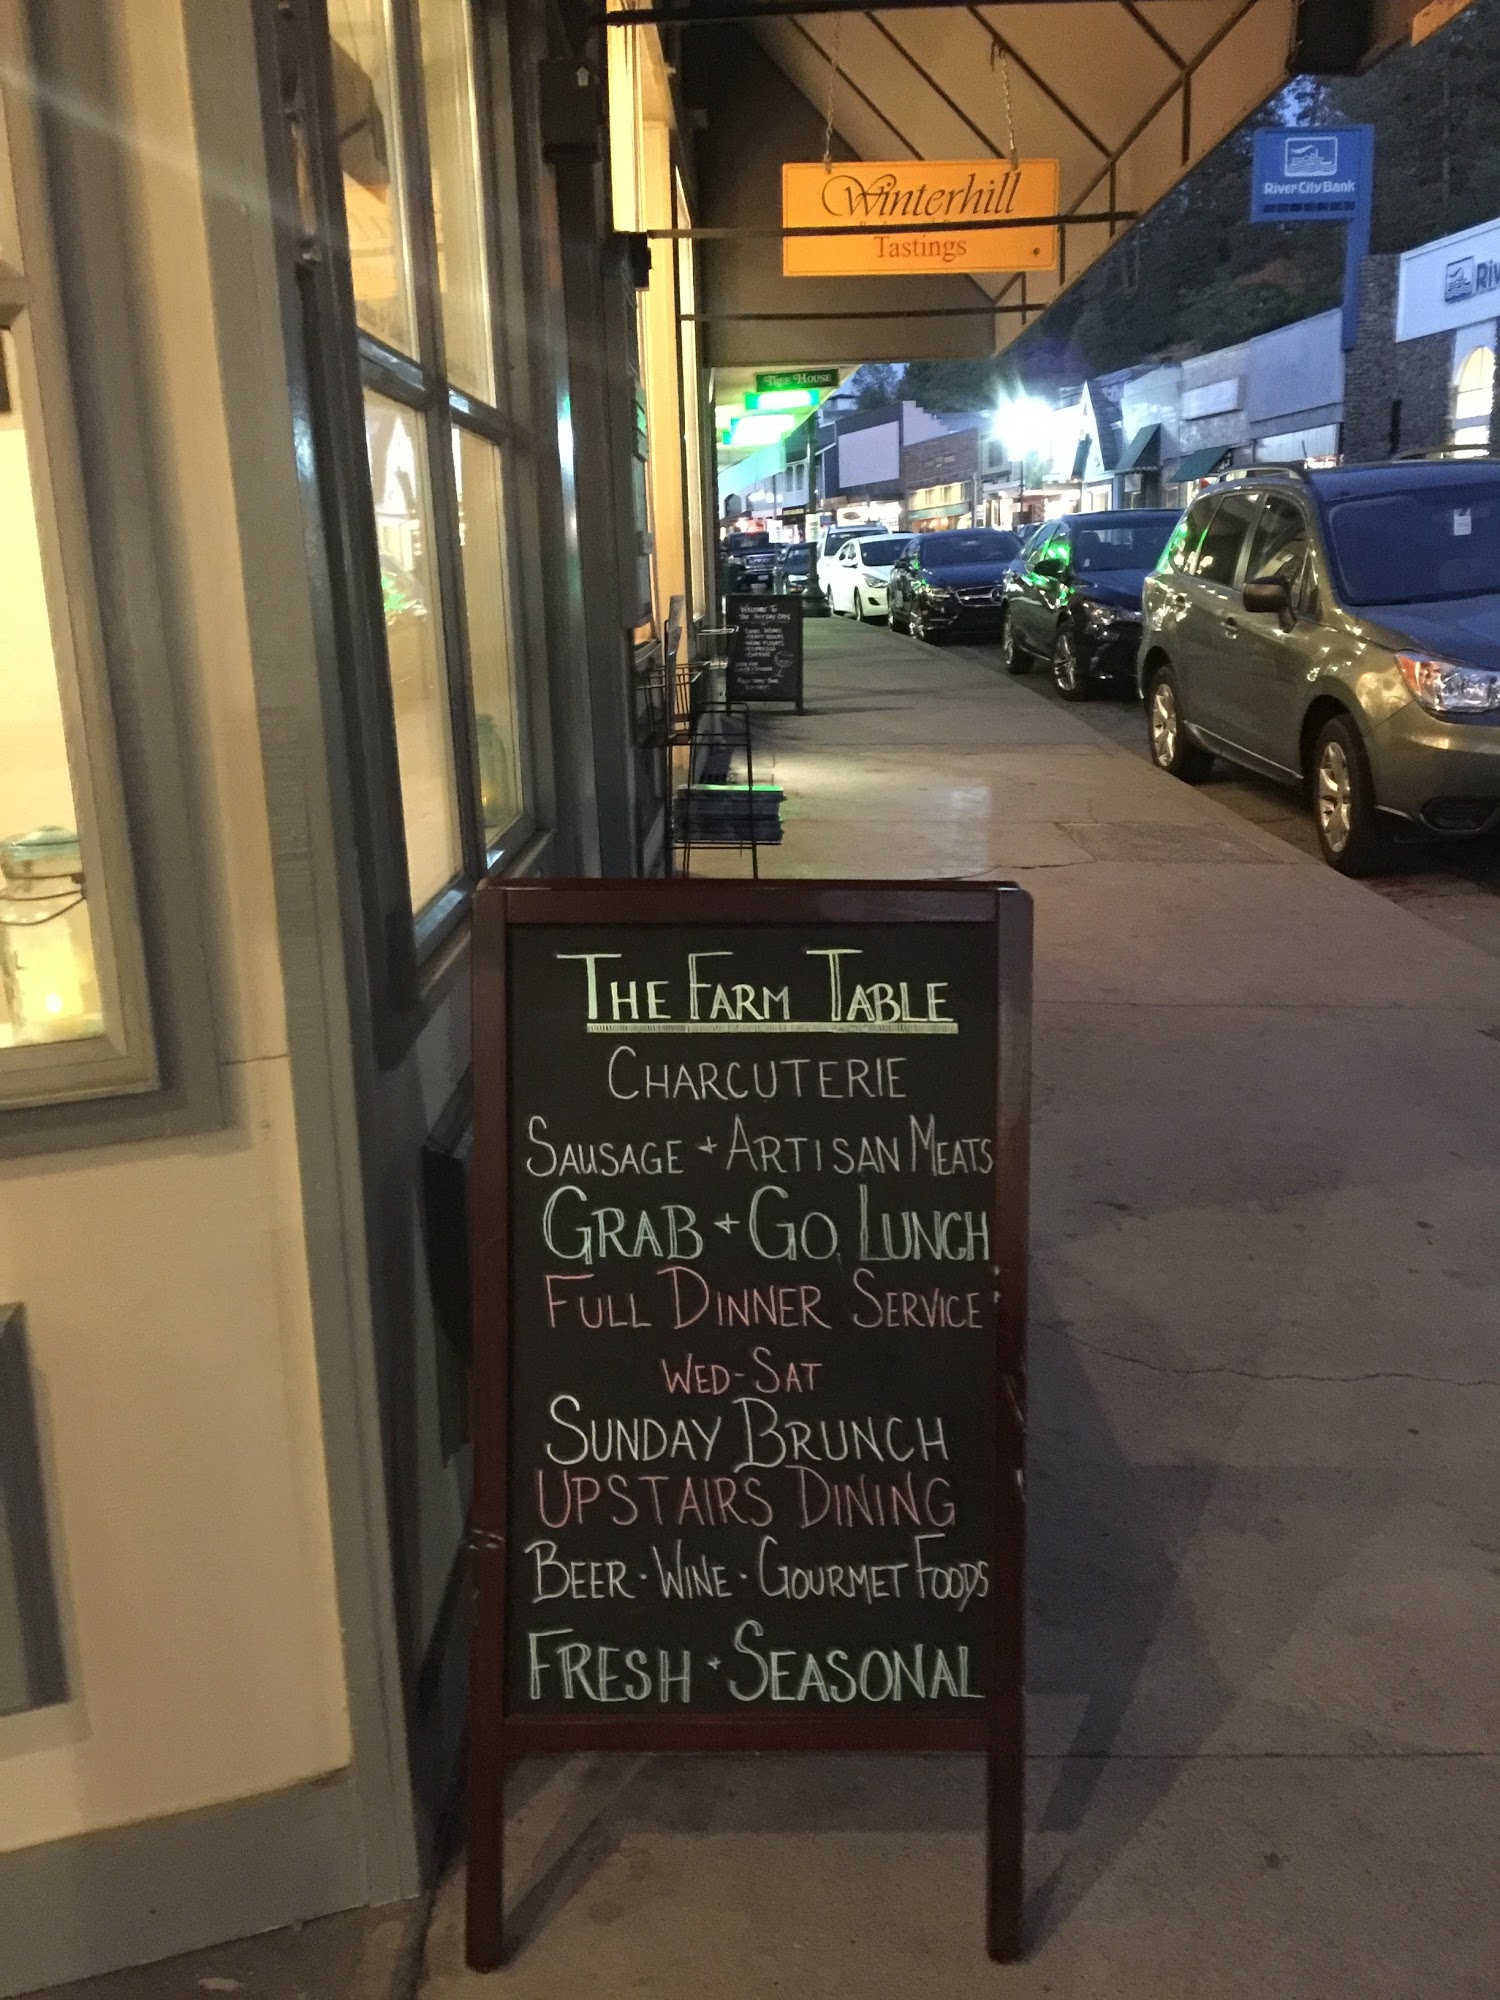 Winterhill
Tastings
River City Bank
Riv
TREE HOUSE
WELCOME TO
THE FARM TABLE
CHARCUTERIE
SAUSAGE + ARTISAN MEATS
GRAB + GO LUNCH
FULL DINNER SERVICE
WED-SAT
SUNDAY BRUNCH
UPSTAIRS DINING
BEER · WINE · GOURMET FOODS
FRESH + SEASONAL